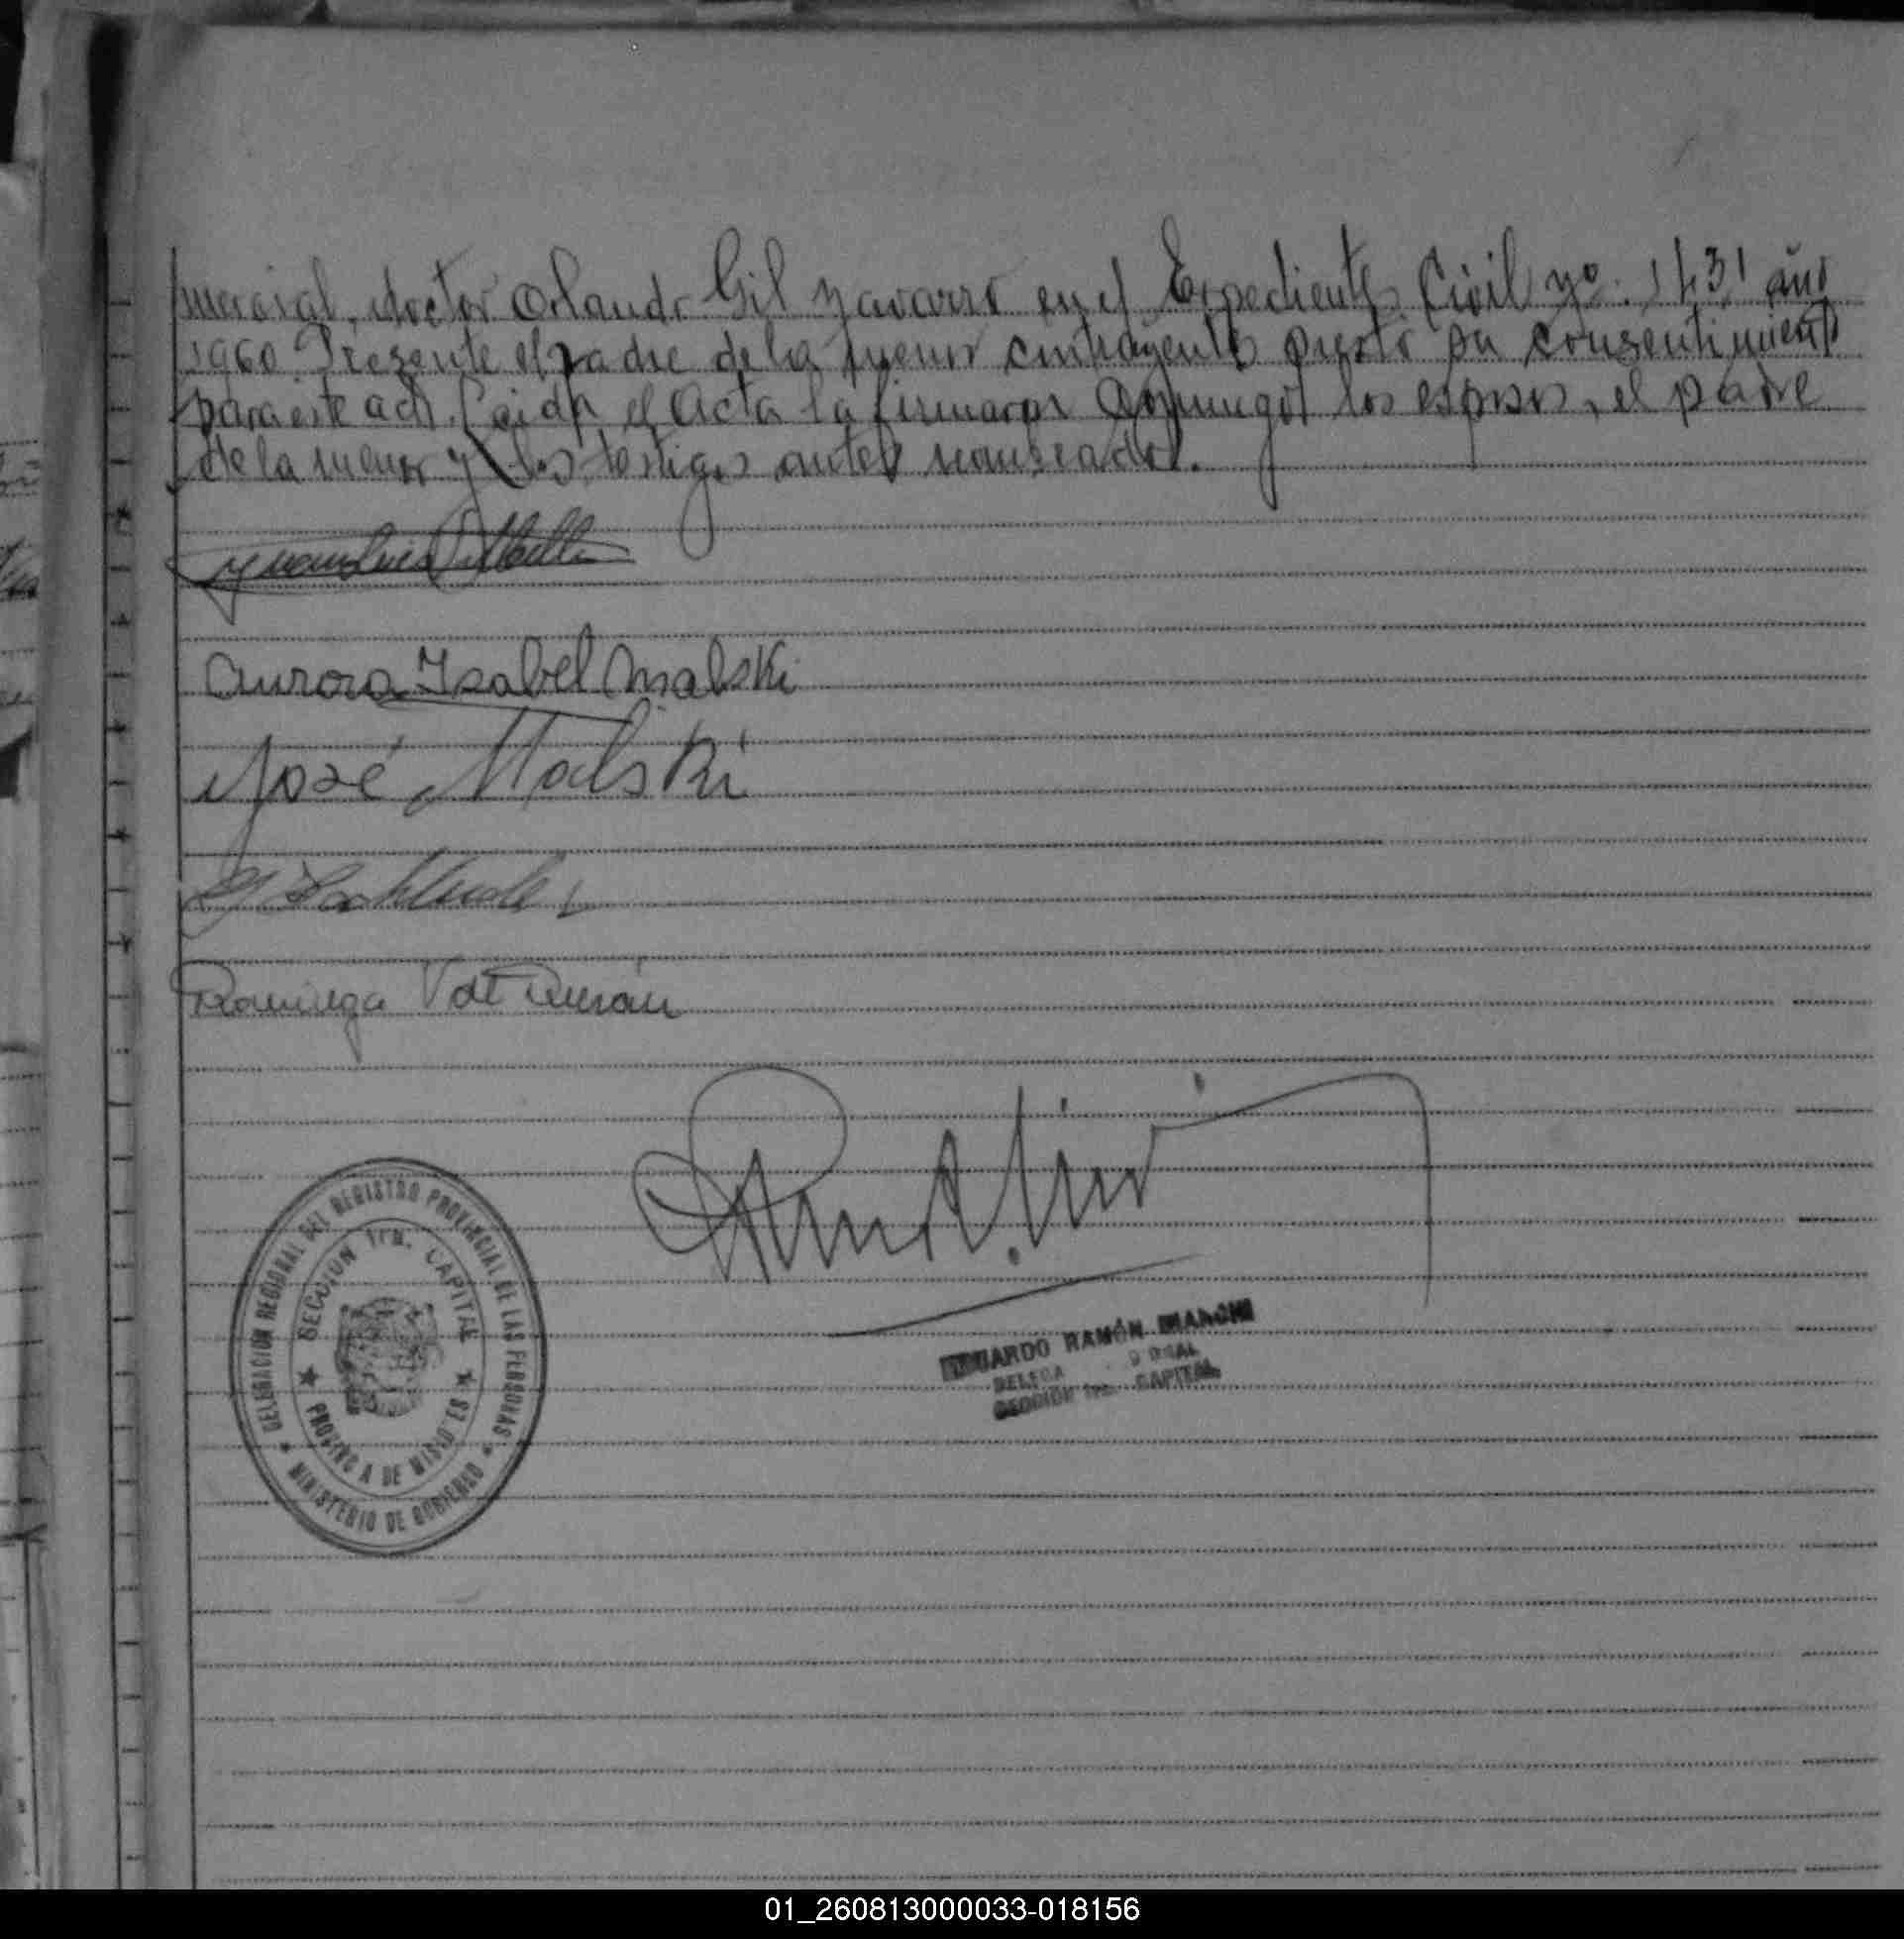 mercial, doctor Orlando Gil Navarro en el Expediente Civil Nº. 1431 año
1960. Presente el padre de la menor contrayente prestó su consentimiento
para este acto. Leida el Acta la firmaron conmigo los esposos, el padre
de la menor y los testigos antes nombrados.
Juan Luis
Aurora Isabel Malski
José Malski
V de Durán
DELEGACION REGIONAL DEL REGISTRO PROVINCIAL DE LAS PERSONAS
SECCION 1ra. CAPITAL
PROVINCIA DE MISIONES
MINISTERIO DE GOBIERNO
EDUARDO RAMÓN BIANCHI
SECCION 1ra. CAPITAL
01_260813000033-018156